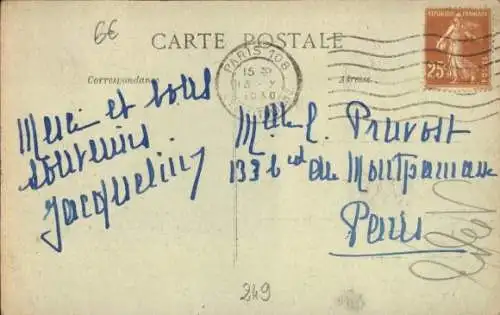 6€
CARTE POSTALE
Correspondance
Adresse
PARIS 108
15
1930
REPUBLIQUE FRANÇAISE
25c
Merci et bons
souvenirs
Jacqueline
Melle L. Pruvost
133 bd du Montparnasse
Paris
249